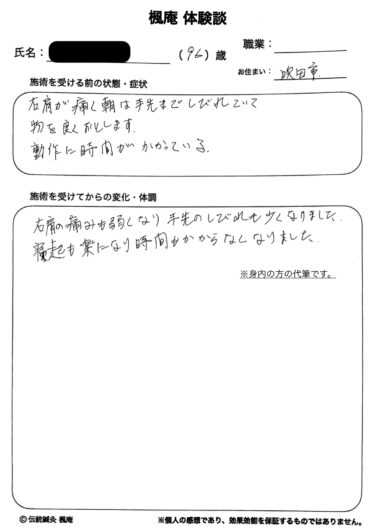 楓庵 体験談
氏名： （96）歳 職業：
お住まい： 吹田市
施術を受ける前の状態・症状
右肩が痛く朝は手先までしびれていて
物を良くおとします。
動作に時間がかかっている。
施術を受けてからの変化・体調
右肩の痛みも弱くなり手先のしびれも少くなりました。
寝起も楽になり時間もかからなくなりました。
※身内の方の代筆です。
© 伝統鍼灸 楓庵 ※個人の感想であり、効果効能を保証するものではありません。